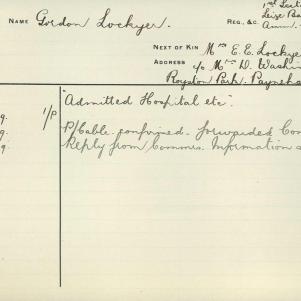 1st
NAME Gordon Lockyer. REG., &C
NEXT OF KIN Mrs E. E. Lockyer
ADDRESS c/o Mrs D. Washin
Royston Park. Payneha
"Admitted Hospital etc"
9. 1/P P/Cable. confirmed. forwarded Com
9. Reply from Commrs. Information